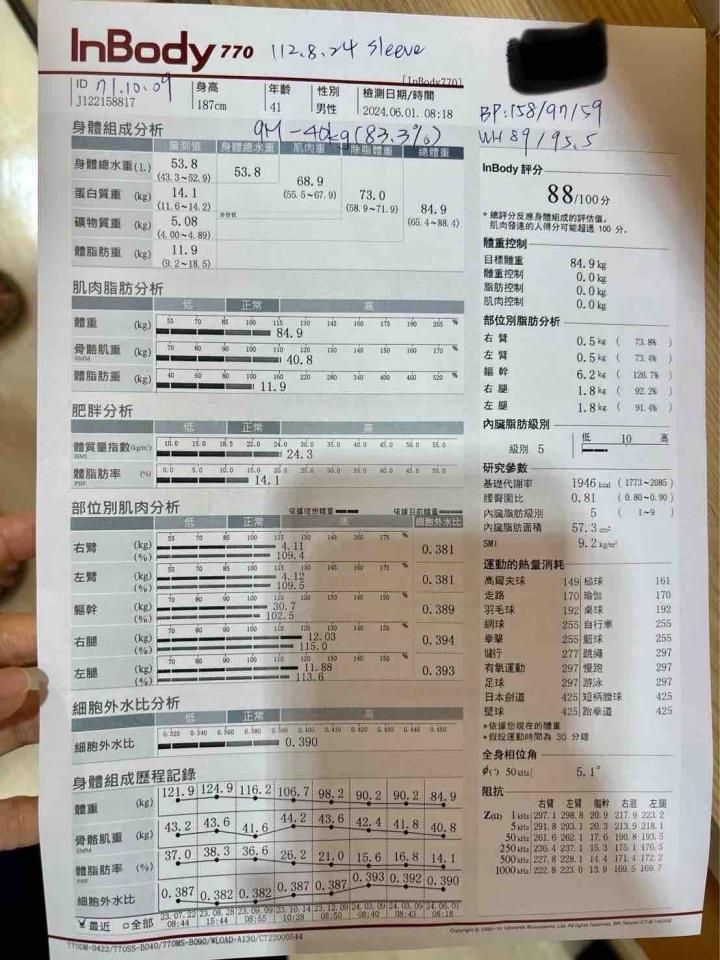 InBody 770 112.8.24 sleeve
[InBody770]
ID 71.10.09 身高 年齡 性別 檢測日期/時間
J122158817 187cm 41 男性 2024.06.01. 08:18
BP:158/97/59
WH 89/95.5
9M -40kg(83.3%)
身體組成分析
量測值 身體總水重 肌肉重 除脂體重 總體重
身體總水重(L) 53.8 (43.3~52.9) 53.8 68.9 (55.5~67.9) 73.0 (58.9~71.9) 84.9 (65.4~88.4)
蛋白質重 (kg) 14.1 (11.6~14.2)
礦物質重 (kg) 5.08 (4.00~4.89)
體脂肪重 (kg) 11.9 (9.2~18.5)
肌肉脂肪分析
低 正常 高
體重 (kg) 55 70 85 100 115 130 145 160 175 190 205 %
84.9
骨骼肌重 (kg) 70 80 90 100 110 120 130 140 150 160 170 %
SMM 40.8
體脂肪重 (kg) 40 60 80 100 160 220 280 340 400 460 520 %
11.9
肥胖分析
低 正常 高
體質量指數(kg/m²) 10.0 15.0 18.5 22.0 24.0 30.0 35.0 40.0 45.0 50.0 55.0
BMI 24.3
體脂肪率 (%) 0.0 5.0 10.0 15.0 20.0 25.0 30.0 35.0 40.0 45.0 50.0
PBF 14.1
部位別肌肉分析 依據理想體重 依據目前體重
低 正常 高 細胞外水比
右臂 (kg) (%) 55 70 85 100 115 130 145 160 175 %
4.11
109.4 0.381
左臂 (kg) (%) 55 70 85 100 115 130 145 160 175 %
4.12
109.5 0.381
軀幹 (kg) (%) 70 80 90 100 110 120 130 140 150 %
30.7
102.5 0.389
右腿 (kg) (%) 70 80 90 100 110 120 130 140 150 %
12.03
115.0 0.394
左腿 (kg) (%) 70 80 90 100 110 120 130 140 150 %
11.88
113.6 0.393
細胞外水比分析
低 正常 高
細胞外水比 0.320 0.340 0.360 0.380 0.390 0.400 0.410 0.420 0.430 0.440 0.450
0.390
身體組成歷程記錄
體重 (kg) 121.9 124.9 116.2 106.7 98.2 90.2 90.2 84.9
骨骼肌重 (kg) 43.2 43.6 41.6 44.2 43.6 42.4 41.8 40.8
SMM
體脂肪率 (%) 37.0 38.3 36.6 26.2 21.0 15.6 16.8 14.1
PBF
細胞外水比 0.387 0.382 0.382 0.387 0.387 0.393 0.392 0.390
最近 全部 23.07.22 23.08.28 23.09.09 23.10.14 23.12.09 24.03.09 24.03.09 24.06.01
08:44 15:44 08:55 10:28 08:50 08:40 08:43 08:18
InBody 評分
88/100 分
* 總評分反應身體組成的評估值。
肌肉發達的人得分可能超過 100 分。
體重控制
目標體重 84.9 kg
體重控制 0.0 kg
脂肪控制 0.0 kg
肌肉控制 0.0 kg
部位別脂肪分析
右臂 0.5 kg ( 73.8% )
左臂 0.5 kg ( 73.4% )
軀幹 6.2 kg ( 126.7% )
右腿 1.8 kg ( 92.2% )
左腿 1.8 kg ( 91.4% )
內臟脂肪級別
級別 5 低 10 高
研究參數
基礎代謝率 1946 kcal ( 1773~2085 )
腰臀圍比 0.81 ( 0.80~0.90 )
內臟脂肪級別 5 ( 1~9 )
內臟脂肪面積 57.3 cm²
SMI 9.2 kg/m²
運動的熱量消耗
高爾夫球 149 槌球 161
走路 170 瑜伽 170
羽毛球 192 桌球 192
網球 255 自行車 255
拳擊 255 籃球 255
健行 277 跳繩 297
有氧運動 297 慢跑 297
足球 297 游泳 297
日本劍道 425 短柄牆球 425
壁球 425 跆拳道 425
*依據您現在的體重
*假設運動時間為 30 分鐘
全身相位角
ϕ(°) 50 kHz 5.1°
阻抗
右臂 左臂 軀幹 右腿 左腿
Z(Ω) 1 kHz 297.1 298.8 20.9 217.9 223.2
5 kHz 291.8 293.1 20.3 213.9 218.1
50 kHz 261.6 262.1 17.6 190.8 193.5
250 kHz 236.4 237.1 15.3 175.1 176.5
500 kHz 227.8 228.1 14.4 171.4 172.2
1000 kHz 222.8 223.0 13.9 169.5 169.7